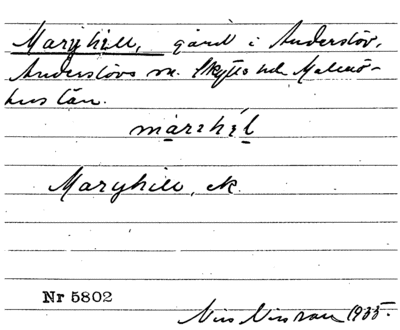 Maryhill, gård i Anderslöv,
Anderslövs sn. Skytts hd. Malmö-
hus län.
marihíl
Maryhill, ek.
Nr 5802
Nils Nilsson 1935.